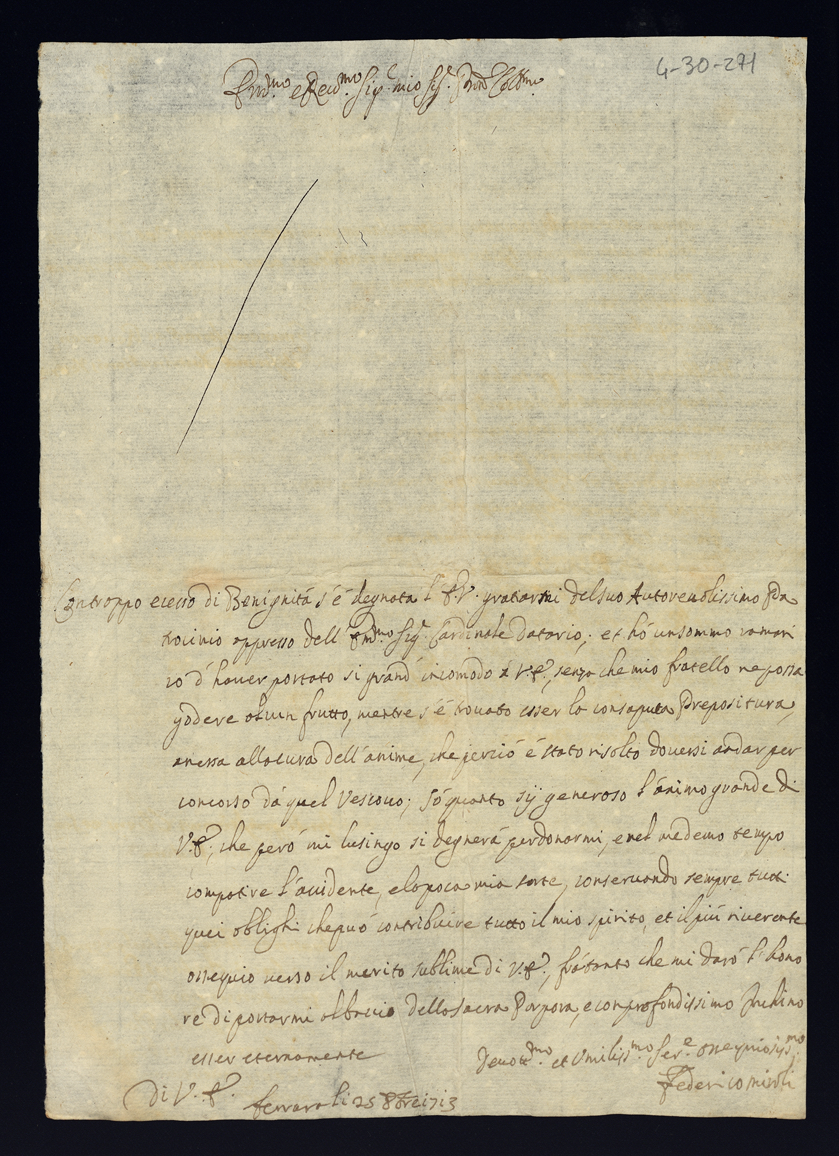 4-30-271
Em.mo e Rev.mo Sig.r mio Sig.r Pron Col.mo
Con troppo ecesso di Benignità s'è degnata l'E.V. gratiarmi del suo Autorevolissimo Pa
trocinio appresso dell'Em.mo Sig.r Cardinale Datario; et hò un sommo ramari
co d'haver portato si grand'incomodo à V.E., senza che mio fratello ne possa
godere alcun frutto, mentre s'è trovato esser la consaputa Prepositura,
anessa alla cura dell'anime, che perciò è stato risolto doversi andar per
concorso dà quel Vescovo; Sò quanto sij generoso l'animo grande di
V.E., che però mi lusingo si degnerà perdonarmi, e nel medemo tempo
compatire l'accidente, e la poca mia sorte, conservando sempre tutti
quei oblighi che può contribuire tutto il mio spirito, et il più riverente
ossequio verso il merito sublime di V.E., frà tanto che mi darò l'hono
re di portarmi al bacio della Sacra Porpora, e con profondissimo Inchino
esser eternamente
Devot.mo et Umiliss.mo Ser.e ossequiosiss.mo
Di V.E.
Federico Miroli
Ferrara li 25 8bre 1713